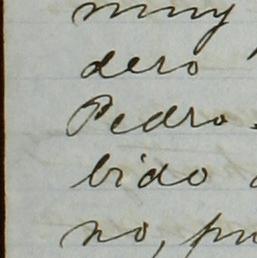 muy
dero
Pedro.
bido
no, pu